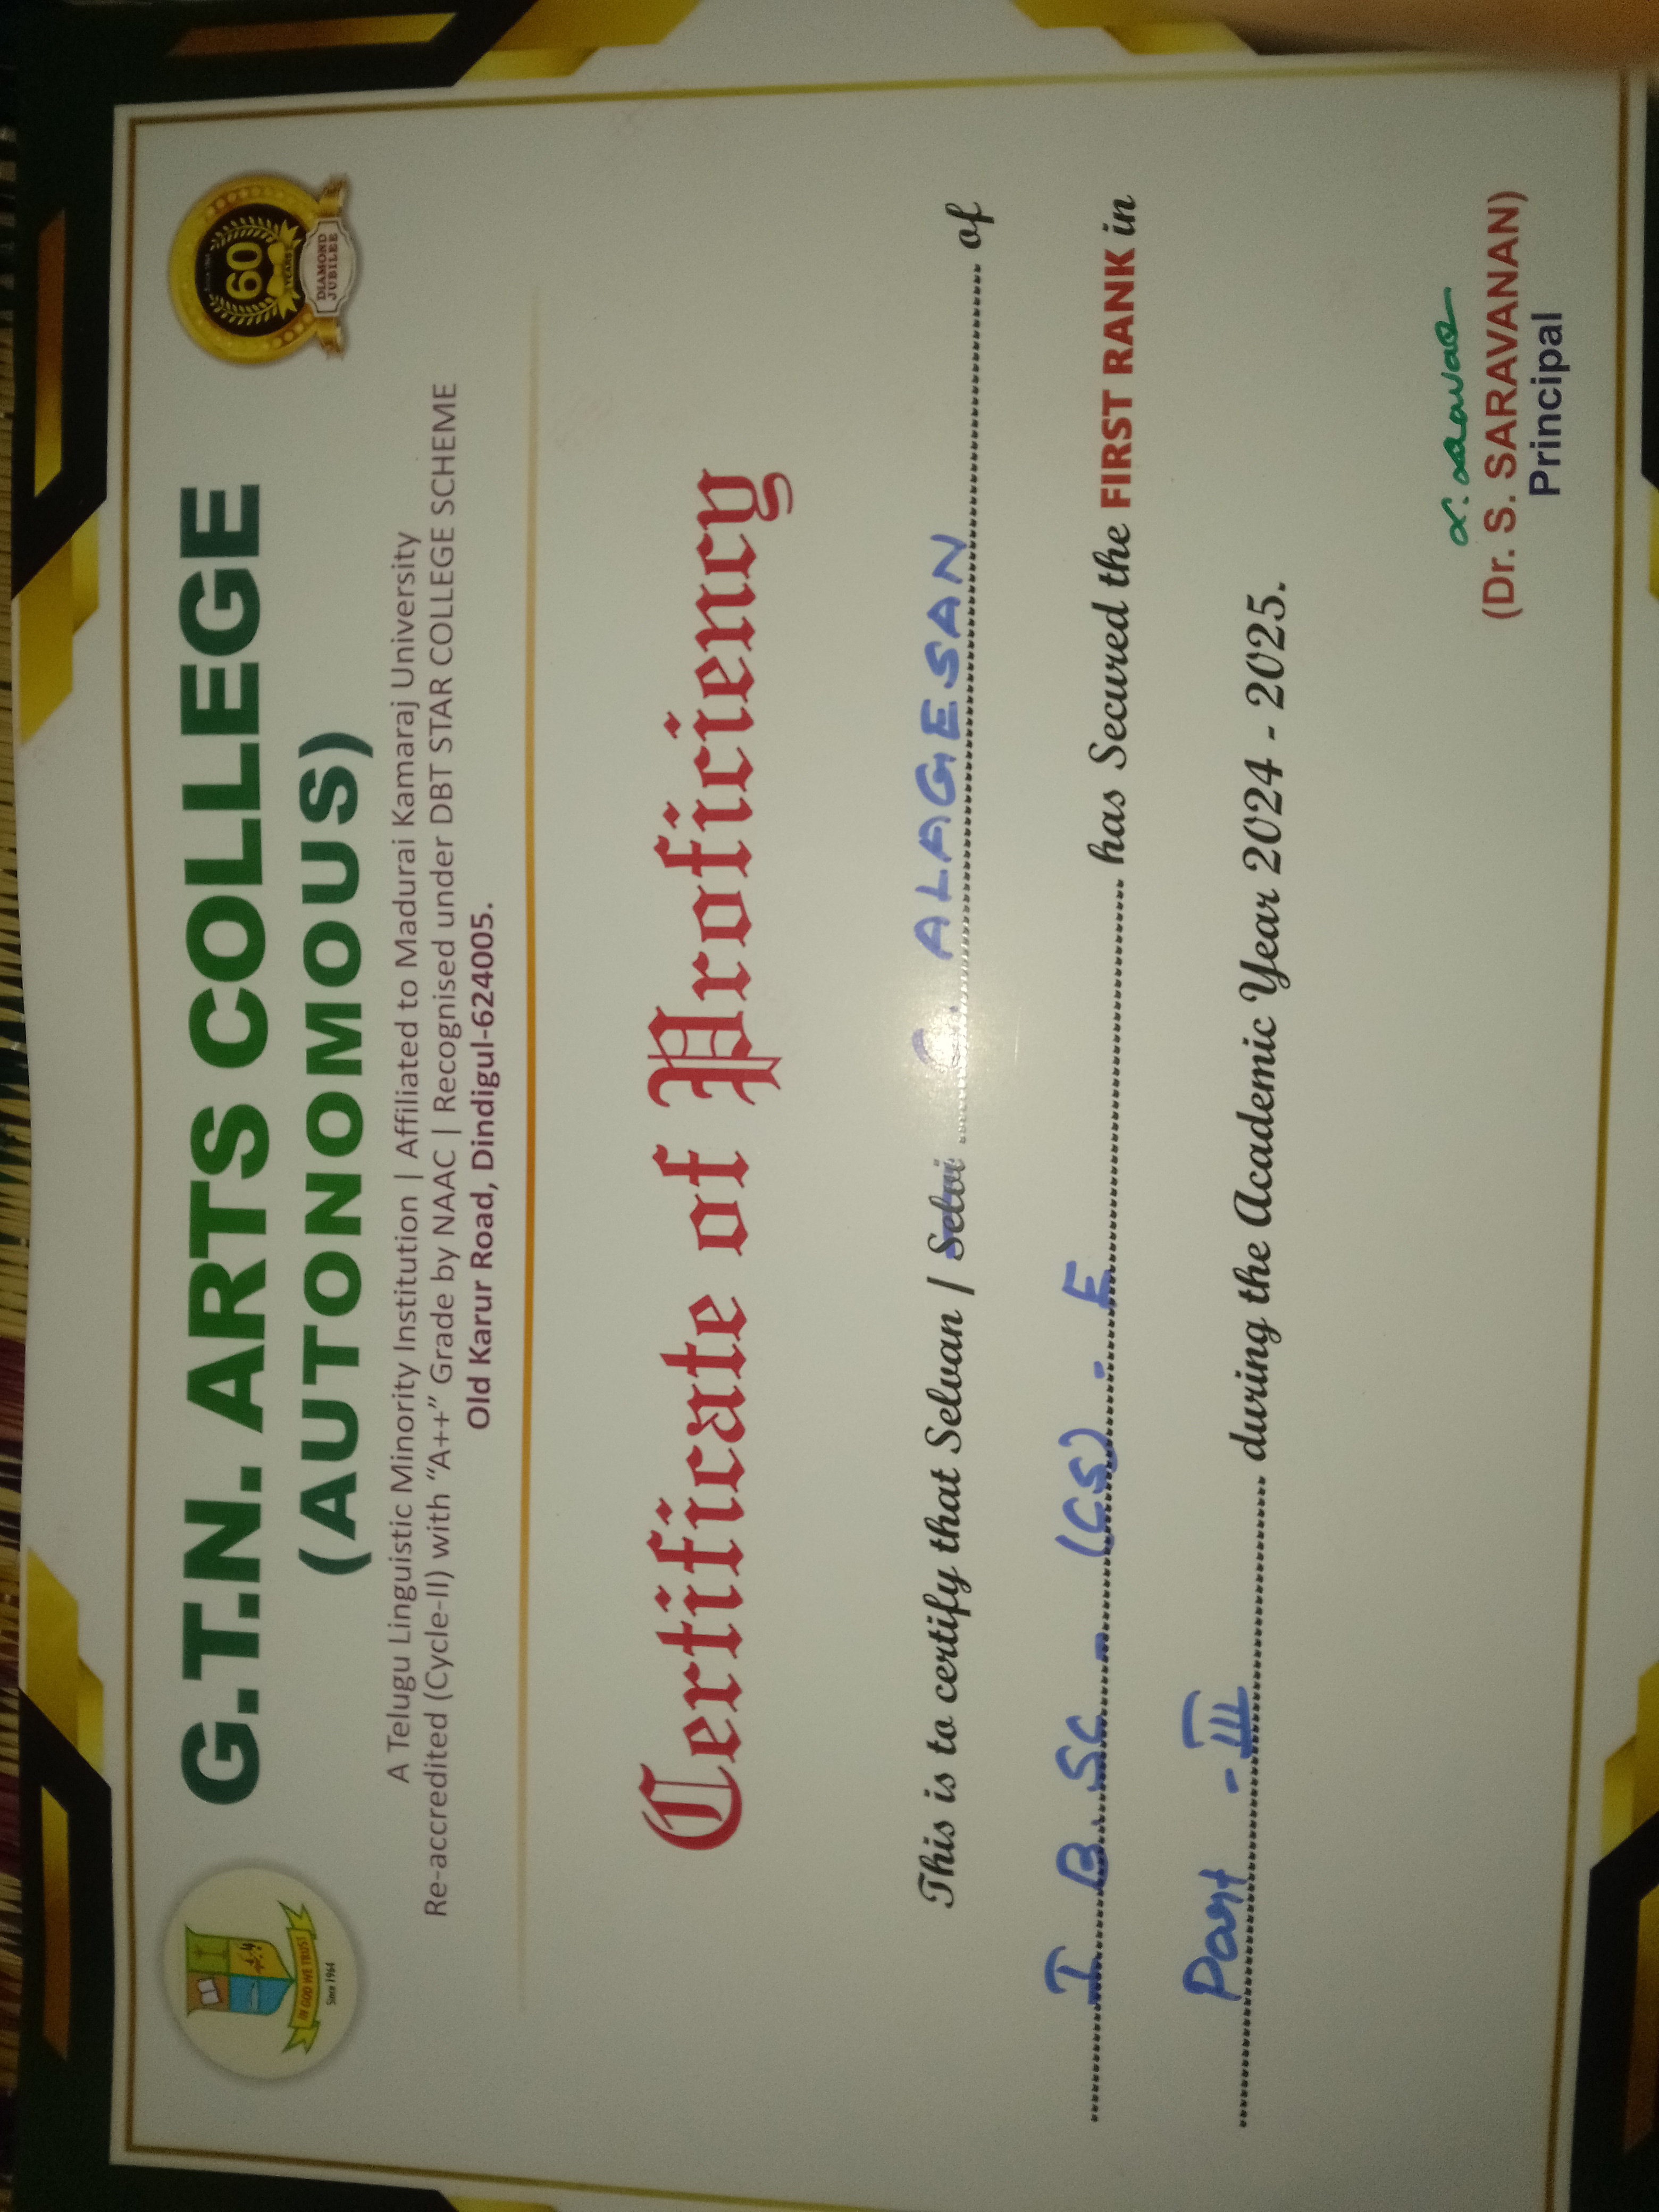 G.T.N. ARTS COLLEGE
(AUTONOMOUS)
IN GOD WE TRUST
Since 1964
Since 1964
60
YEARS
DIAMOND
JUBILEE
A Telugu Linguistic Minority Institution | Affiliated to Madurai Kamaraj University
Re-accredited (Cycle-II) with “A++” Grade by NAAC | Recognised under DBT STAR COLLEGE SCHEME
Old Karur Road, Dindigul-624005.
Certificate of Proficiency
This is to certify that Selvan / Selvi ALAGESAN of
I B.SC - (CS) - E has Secured the FIRST RANK in
Part - III during the Academic Year 2024 - 2025.
(Dr. S. SARAVANAN)
Principal